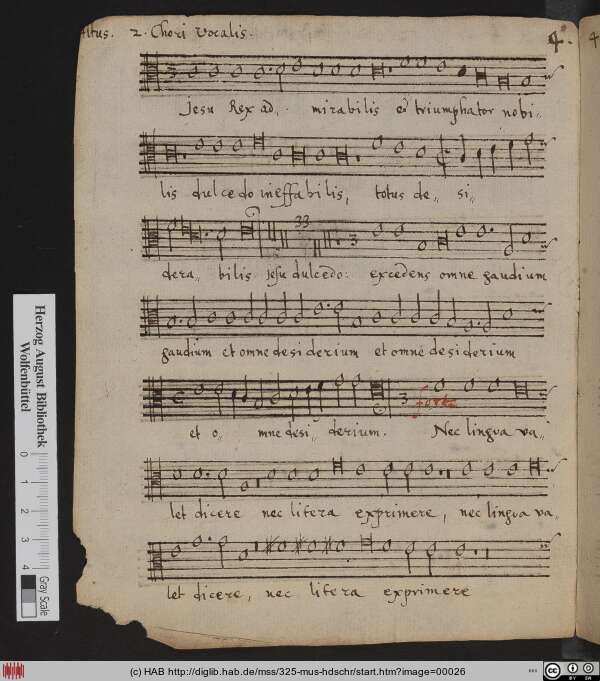 Altus. 2. Chori Vocalis. 4.
4
Jesu Rex ad- mirabilis et triumphator nobi-
lis dulcedo ineffabilis, totus de- si-
33
3
dera- bilis Jesu dulcedo: excedens omne gaudium
gaudium et omne desiderium et omne desiderium
3 forte
et o- mne desi- derium. Nec lingva va-
let dicere nec litera exprimere, nec lingva va-
let dicere, nec litera exprimere
Herzog August Bibliothek
Wolfenbüttel
0 1 2 3 4
Gray Scale
(c) HAB http://diglib.hab.de/mss/325-mus-hdschr/start.htm?image=00026
cc BY SA